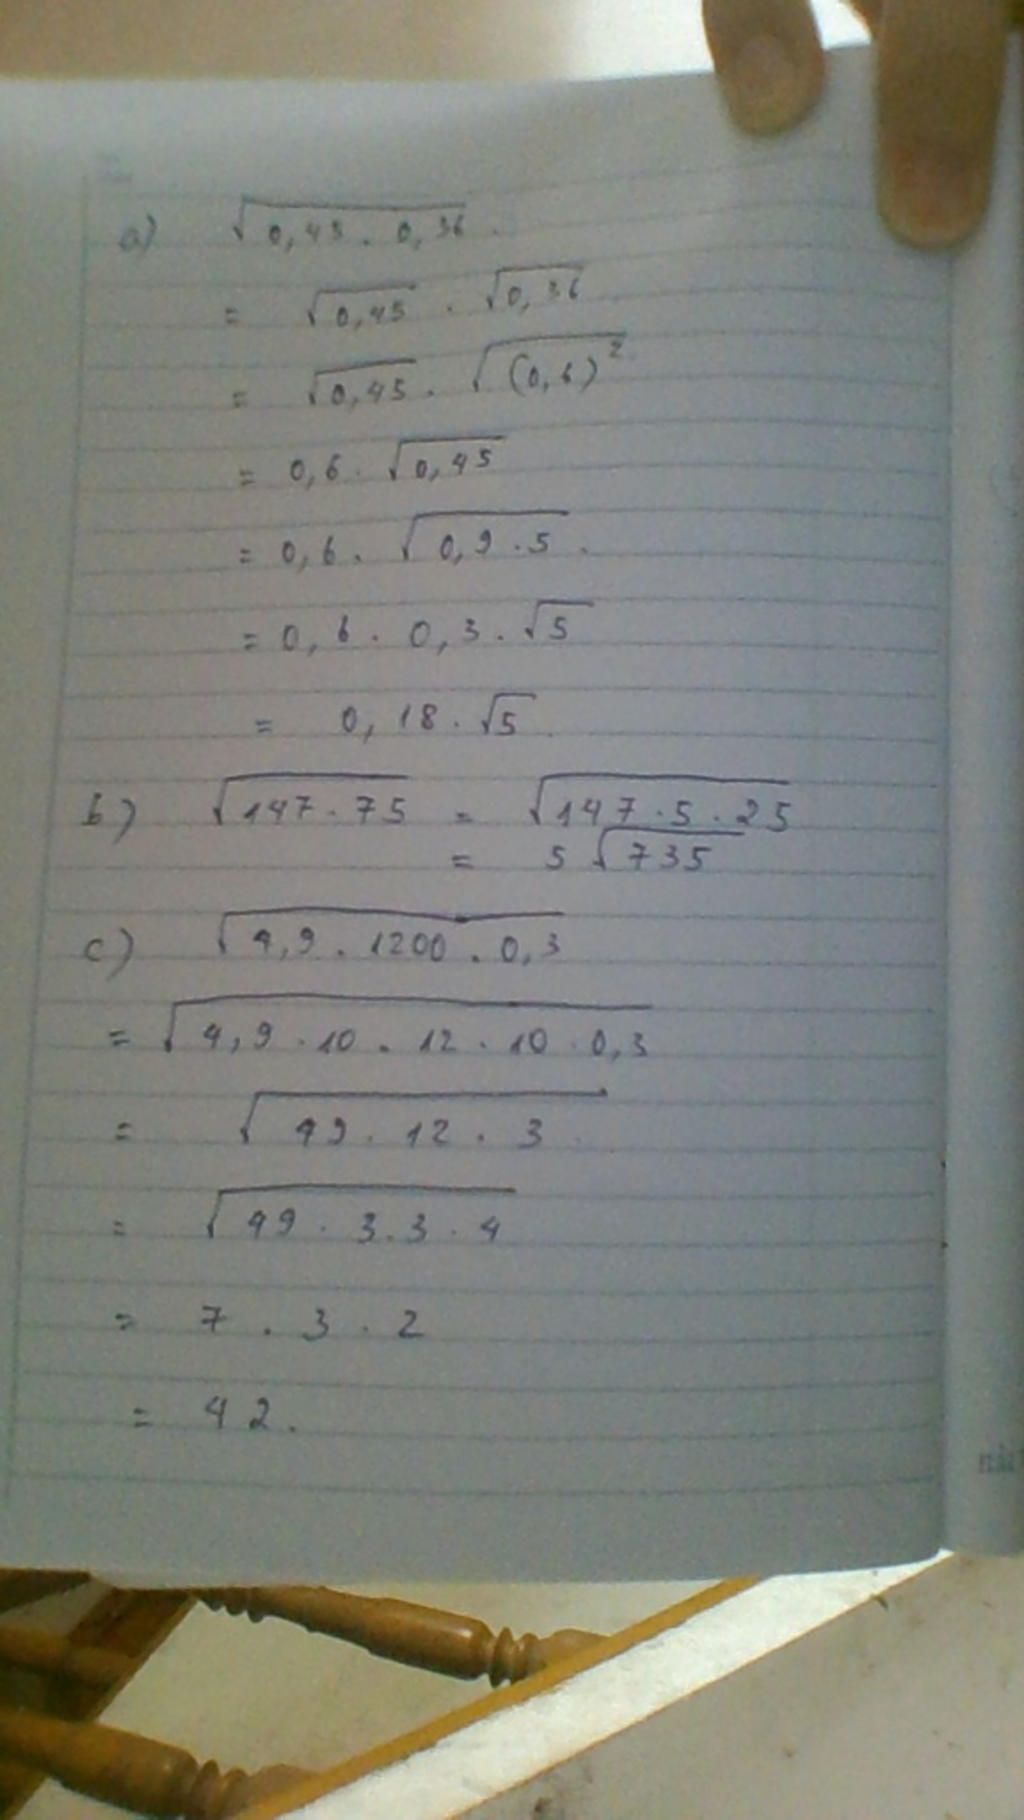 a) √(0,45 . 0,36) .
= √(0,45) . √(0,36)
= √(0,45) . √((0,6)²)
= 0,6 . √(0,45)
= 0,6 . √(0,9 . 5) .
= 0,6 . 0,3 . √5
= 0,18 . √5
b) √(147 . 75) = √(147 . 5 . 25)
= 5 √(735)
c) √(4,9 . 1200 . 0,3)
= √(4,9 . 10 . 12 . 10 . 0,3)
= √(49 . 12 . 3)
= √(49 . 3 . 3 . 4)
= 7 . 3 . 2
= 42 .